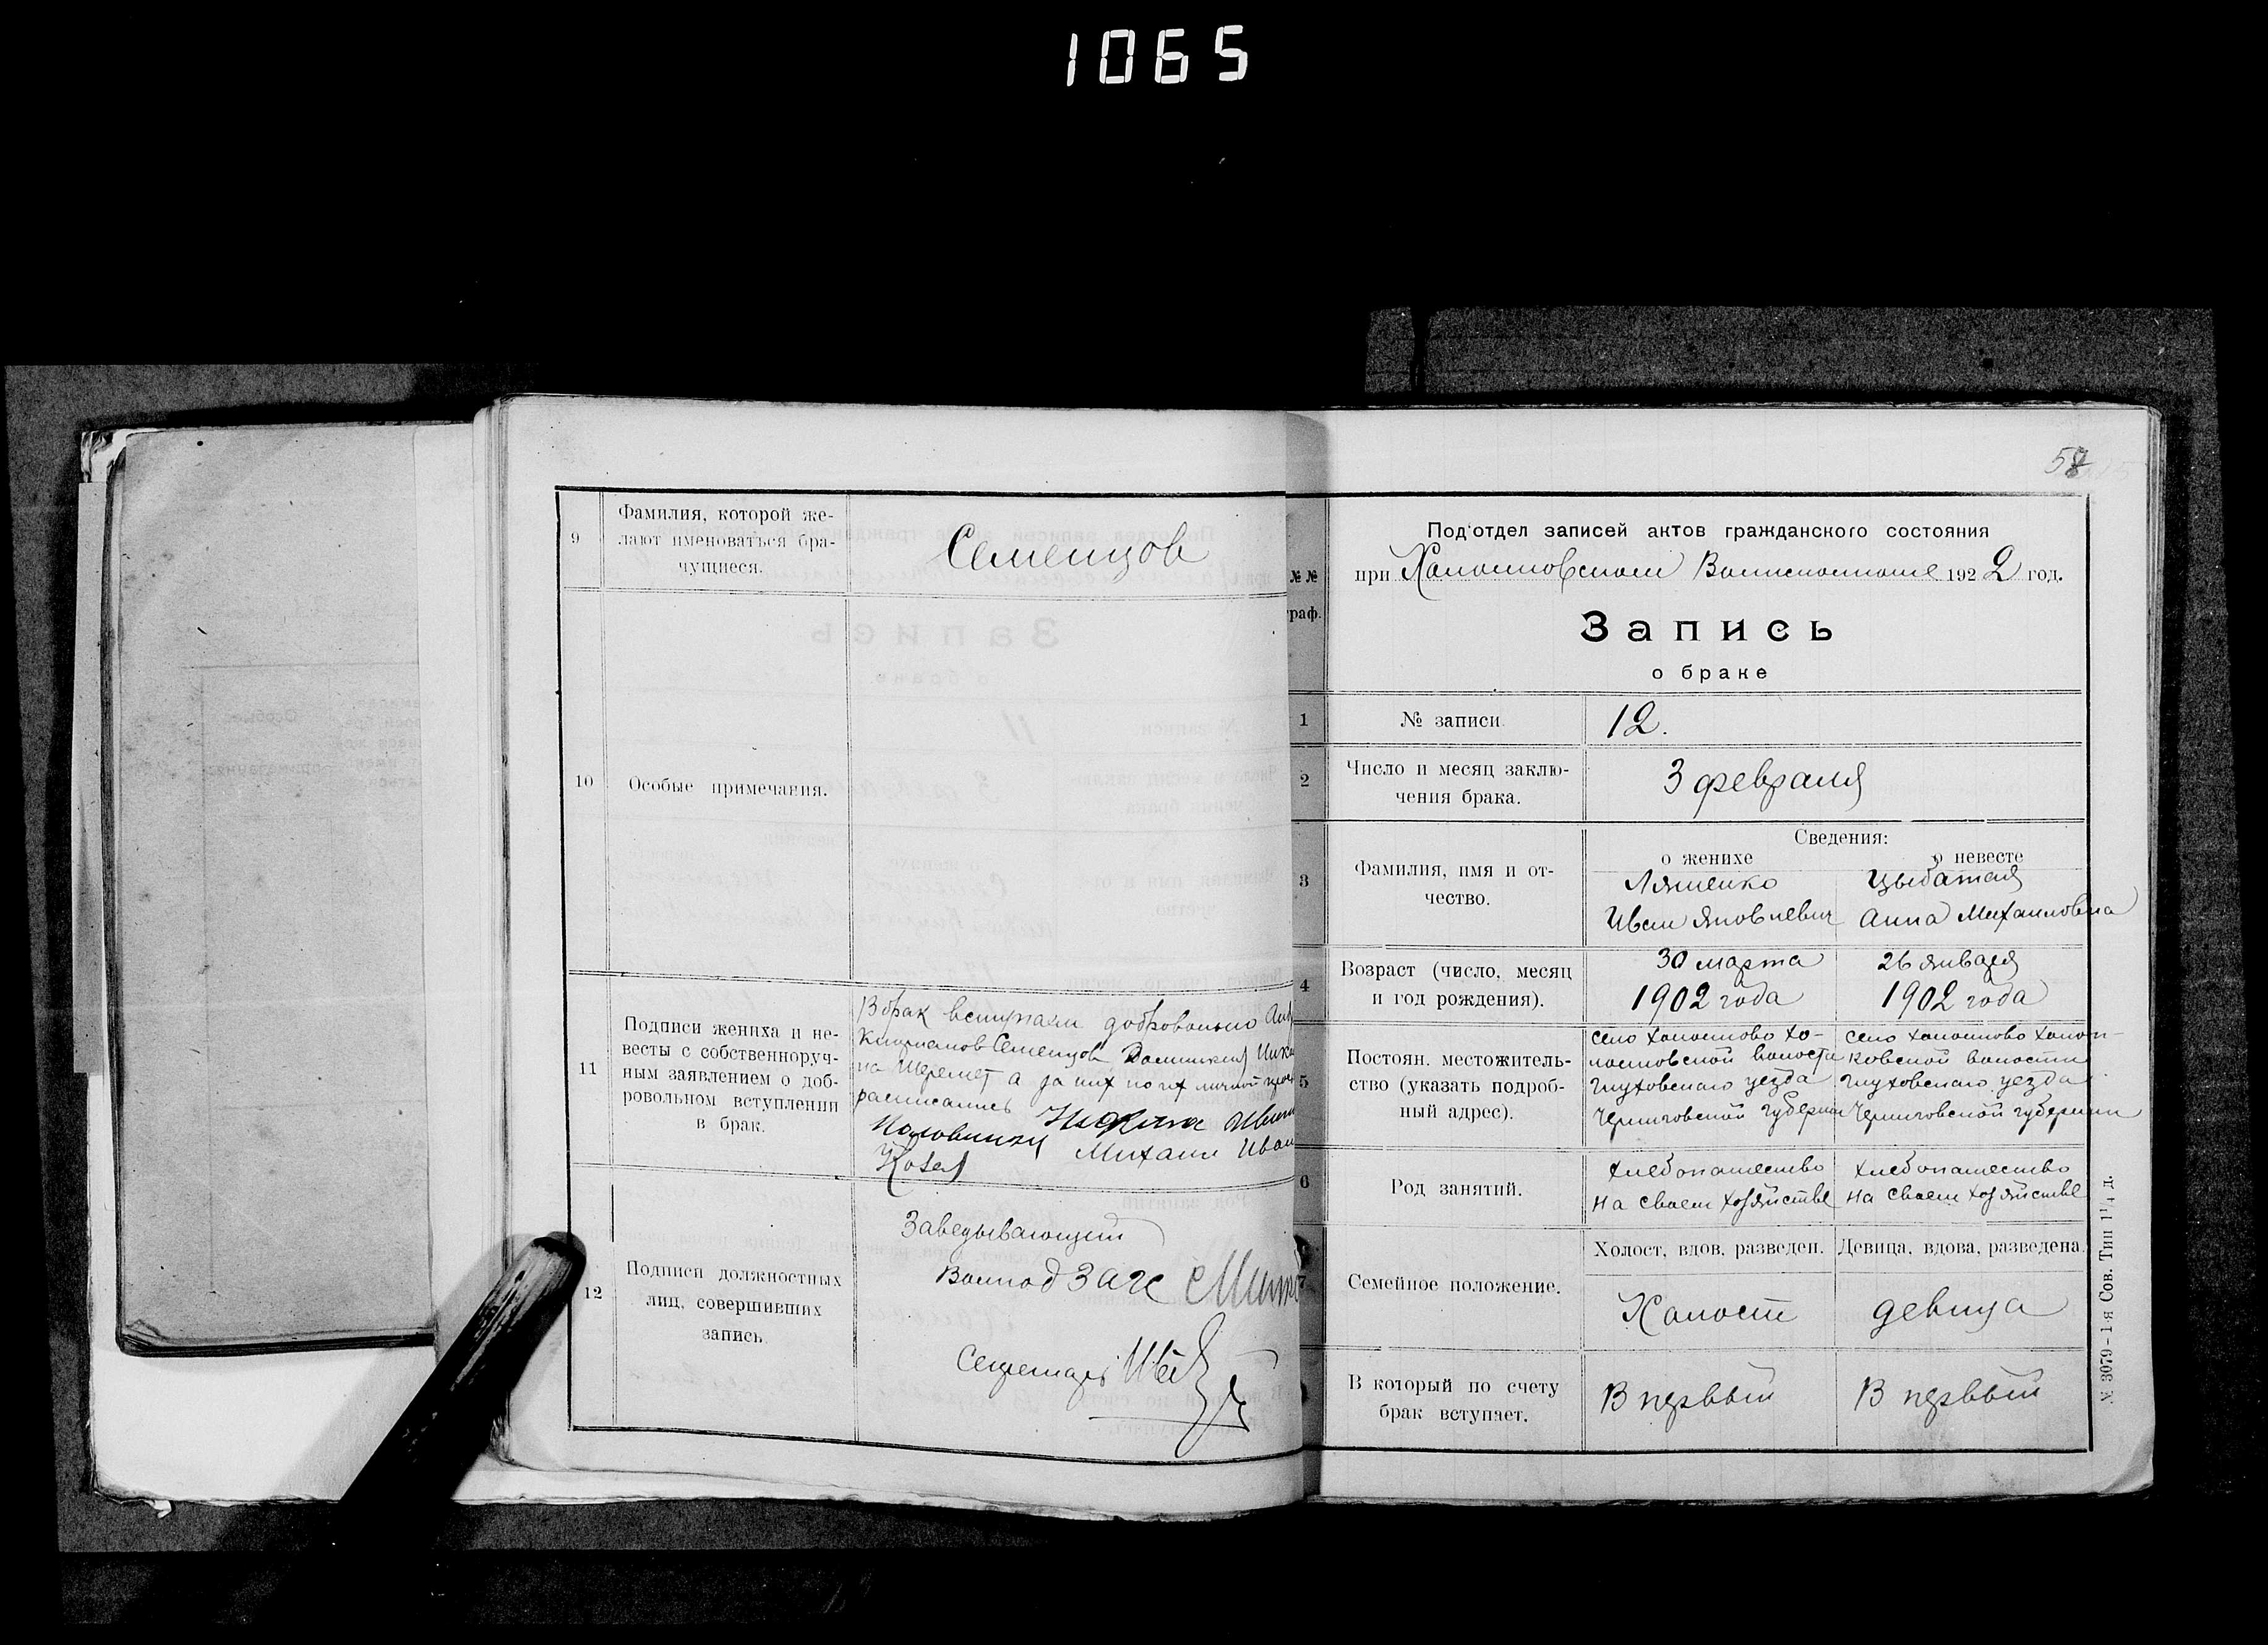 1065
9
Фамилия, которой же-
лают именоваться бра-
чущиеся.
Семенцов
10
Особые примечания.
11
Подписи жениха и не-
весты с собственноруч-
ным заявлением о доб-
ровольном вступлении
в брак.
В брак вступаем добровольно
Семенцов
Шеремет а за них по их личной
расписались
Михаил Иван
Козел
12
Подписи должностных
лиц, совершивших
запись.
Заведывающий
Волпод Загс
Секретарь
58
№№
граф.
Под'отдел записей актов гражданского состояния
при Холопковском Волисполкоме 1922 год.
Запись
о браке
1
№ записи.
12.
2
Число и месяц заклю-
чения брака.
3 февраля
3
Фамилия, имя и от-
чество.
Сведения:
о женихе
Ляшенко
Иван Яковлевич
о невесте
Цыбатая
Анна Михаиловна
4
Возраст (число, месяц
и год рождения).
30 марта
1902 года
26 января
1902 года
5
Постоян. местожитель-
ство (указать подроб-
ный адрес).
село Холопково Хо-
лопковской волости
Глуховского уезда
Черниговской губернии
село Холопково Холоп-
ковской волости
Глуховского уезда
Черниговской губернии
6
Род занятий.
Хлебопашество
на своем хозяйстве
Хлебопашество
на своем хозяйстве
7
Семейное положение.
Холост, вдов, разведен.
Холост
Девица, вдова, разведена.
девица
В который по счету
брак вступает.
В первый
В первый
№ 3079 - 1-я Сов. Тип 1¹/₄ д.